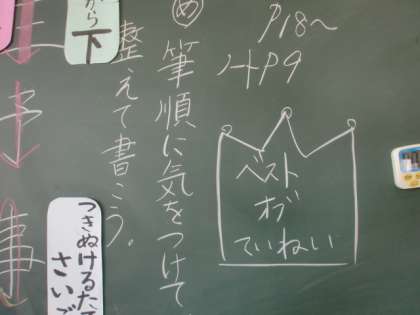 P18〜
ノートP9
ベスト
オブ
ていねい
め
筆順に気をつけて
整えて書こう。
から
下
つきぬけるたて
さいご